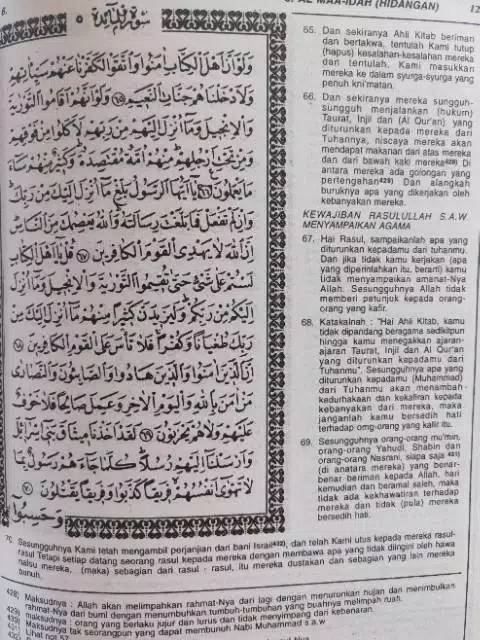 5. AL MAA-IDAH (HIDANGAN)
12
6.
سورة المائدة ٥
وَلَوْ أَنَّ أَهْلَ الْكِتَابِ آمَنُوا وَاتَّقَوْا لَكَفَّرْنَا عَنْهُمْ سَيِّئَاتِهِمْ
وَلَأَدْخَلْنَاهُمْ جَنَّاتِ النَّعِيمِ ٦٥ وَلَوْ أَنَّهُمْ أَقَامُوا التَّوْرَاةَ
وَالْإِنْجِيلَ وَمَا أُنْزِلَ إِلَيْهِمْ مِنْ رَبِّهِمْ لَأَكَلُوا مِنْ فَوْقِهِمْ
وَمِنْ تَحْتِ أَرْجُلِهِمْ مِنْهُمْ أُمَّةٌ مُقْتَصِدَةٌ وَكَثِيرٌ مِنْهُمْ سَاءَ
مَا يَعْمَلُونَ ٦٦ يَا أَيُّهَا الرَّسُولُ بَلِّغْ مَا أُنْزِلَ إِلَيْكَ مِنْ رَبِّكَ
وَإِنْ لَمْ تَفْعَلْ فَمَا بَلَّغْتَ رِسَالَتَهُ وَاللَّهُ يَعْصِمُكَ مِنَ النَّاسِ
إِنَّ اللَّهَ لَا يَهْدِي الْقَوْمَ الْكَافِرِينَ ٦٧ قُلْ يَا أَهْلَ الْكِتَابِ
لَسْتُمْ عَلَى شَيْءٍ حَتَّى تُقِيمُوا التَّوْرَاةَ وَالْإِنْجِيلَ وَمَا أُنْزِلَ
إِلَيْكُمْ مِنْ رَبِّكُمْ وَلَيَزِيدَنَّ كَثِيرًا مِنْهُمْ مَا أُنْزِلَ إِلَيْكَ مِنْ
رَبِّكَ طُغْيَانًا وَكُفْرًا فَلَا تَأْسَ عَلَى الْقَوْمِ الْكَافِرِينَ ٦٨
إِنَّ الَّذِينَ آمَنُوا وَالَّذِينَ هَادُوا وَالصَّابِئُونَ وَالنَّصَارَى
مَنْ آمَنَ بِاللَّهِ وَالْيَوْمِ الْآخِرِ وَعَمِلَ صَالِحًا فَلَا خَوْفٌ
عَلَيْهِمْ وَلَا هُمْ يَحْزَنُونَ ٦٩ لَقَدْ أَخَذْنَا مِيثَاقَ بَنِي إِسْرَائِيلَ
وَأَرْسَلْنَا إِلَيْهِمْ رُسُلًا كُلَّمَا جَاءَهُمْ رَسُولٌ بِمَا
لَا تَهْوَى أَنْفُسُهُمْ فَرِيقًا كَذَّبُوا وَفَرِيقًا يَقْتُلُونَ ٧٠
وَحَسِبُوا
65. Dan sekiranya Ahli Kitab beriman
dan bertakwa, tentulah Kami tutup
(hapus) kesalahan-kesalahan mereka
dan tentulah. Kami masukkan
mereka ke dalam syurga-syurga yang
penuh kni'matan.
66. Dan sekiranya mereka sungguh-
sungguh menjalankan (hukum)
Taurat, Injil dan (Al Qur'an) yang
diturunkan kepada mereka dari
Tuhannya, niscaya mereka akan
mendapat makanan dari atas mereka
dan dari bawah kaki mereka428) Di
antara mereka ada golongan yang
pertengahan429) Dan alangkah
buruknya apa yang dikerjakan oleh
kebanyakan mereka.
KEWAJIBAN RASULULLAH S.A.W.
MENYAMPAIKAN AGAMA
67. Hai Rasul, sampaikanlah apa yang
diturunkan kepadamu dari tuhanmu.
Dan jika tidak kamu kerjakan (apa
yang diperintahkan itu, berarti) kamu
tidak menyampaikan amanat-Nya
Allah. Sesungguhnya Allah tidak
memberi petunjuk kepada orang-
orang yang kafir.
68. Katakanlah : "Hai Ahli Kitab, kamu
tidak dipandang beragama sedikitpun
hingga kamu menegakkan ajaran-
ajaran Taurat, Injil dan Al Qur'an
yang diturunkan kepadamu dari
Tuhanmu". Sesungguhnya apa yang
diturunkan kepadamu (Muhammad)
dari Tuhanmu akan menambah-
kedurhakaan dan kekafiran kepada
kebanyakan dari mereka, maka
janganlah kamu bersedih hati
terhadap orang-orang yang kafir itu.
69. Sesungguhnya orang-orang mu'min,
orang-orang Yahudi, Shabin dan
orang-orang Nasrani, siapa saja 431)
(di anatara mereka) yang benar-
benar beriman kepada Allah, hari
kemudian dan beramal saleh, maka
tidak ada kekhawatiran terhadap
mereka dan tidak (pula) mereka
bersedih hati.
70. Sesungguhnya Kami telah mengambil perjanjian dari bani Israil432), dan telah Kami utus kepada mereka rasul-
rasul Tetapi setiap datang seorang rasul kepada mereka dengan membawa apa yang tidak diingini oleh hawa
nafsu mereka, (maka) sebagian dari rasul - rasul, itu mereka dustakan dan sebagian yang lain mereka
bunuh.
428) Maksudnya : Allah akan melimpahkan rahmat-Nya dari lagi dengan menurunkan hujan dan menimbulkan
rahmat-Nya dari bumi dengan menumbuhkan tumbuh-tumbuhan yang buahnya melimpah ruah.
429) maksudnya : orang yang berlaku jujur dan lurus dan tidak menyimpang dari kebenaran.
Maksudnya tak seorangpun yang dapat membunuh Nabi Muhammad s.a.w